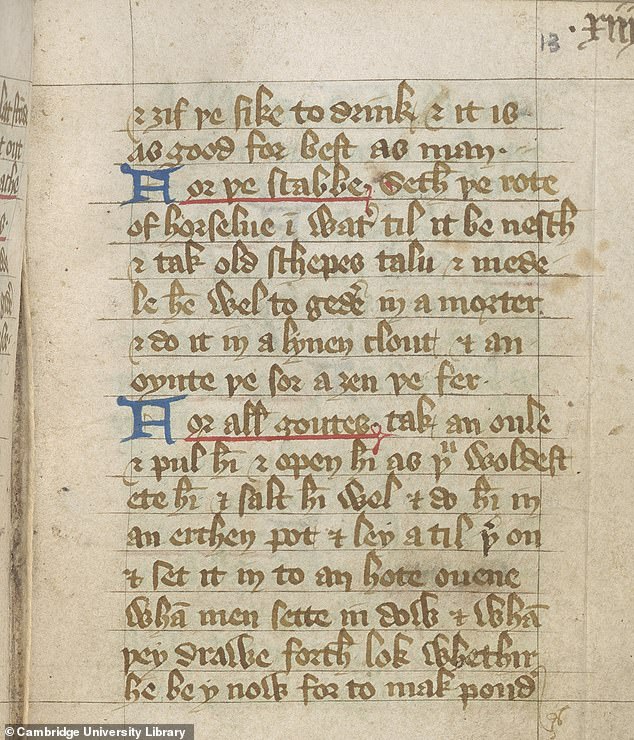 13 · xiij
⁊ ȝif þe sike to drink ⁊ it is
as good for best as man ·
For þe scabbe, Seth þe rote
of horselne ī wat̃ til it be nesch
⁊ tak old schepes talu ⁊ mede
le hē wel to gedẽ in a morter
⁊ do it in a lynen clout, ⁊ an
oynte þe sor a ȝen þe fer ·
For all goutes, tak an oule
⁊ pul hī ⁊ open hī as þᵘ woldest
ete hī ⁊ salt hī wel ⁊ do hī in
an erthen pot ⁊ ley a til þ̄ on
⁊ set it in to an hote ouene
whā men sette in dow ⁊ whā
þey drawe forth lok whethir
he be y now for to mak poud̃
© Cambridge University Library